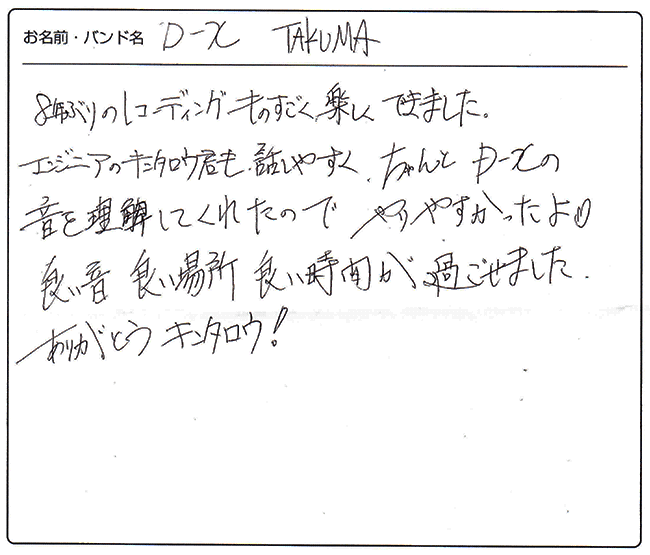 お名前・バンド名 D-X TAKUMA
8年ぶりのレコーディングものすごく楽しくできました。
エンジニアのキンタロウ君も話しやすく、ちゃんとD-Xの
音を理解してくれたのでやりやすかったよ♡
良い音 良い場所 良い時間が過ごせました.
ありがとうキンタロウ!